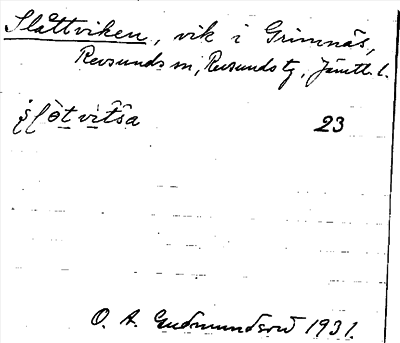 Slåttviken, vik i Grimnäs,
Revsunds sn, Revsunds tg, Jämtl. l.
23
O. A. Gudmundson 1931.